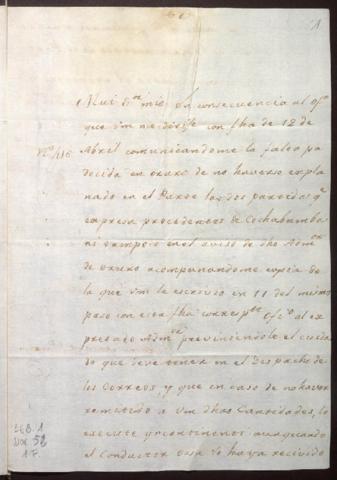 1
Mui S.or mio En consecuencia al of.o
que Vm me dirije con fha de 12 de
Nº 116
Abril comunicandome la falta pa
decida en oruro de no haverse expla
nado en el Parte las dos partidas q.e
expresa procedentes de Cochabamba
ni tampoco en el aviso de dho Adm.or
de oruro acompañandome copia de
la que Vm le escrivio en 11 del mismo
paso con esta fha
presado Adm.or previniendole el cuida
do que deve tener en el Despacho de
los Correos y que en caso de no haver
remitido a Vm dhas Cantidades, lo
execute
el Conductor haya recivido
LEB. 1
NOV. 52
1 F.